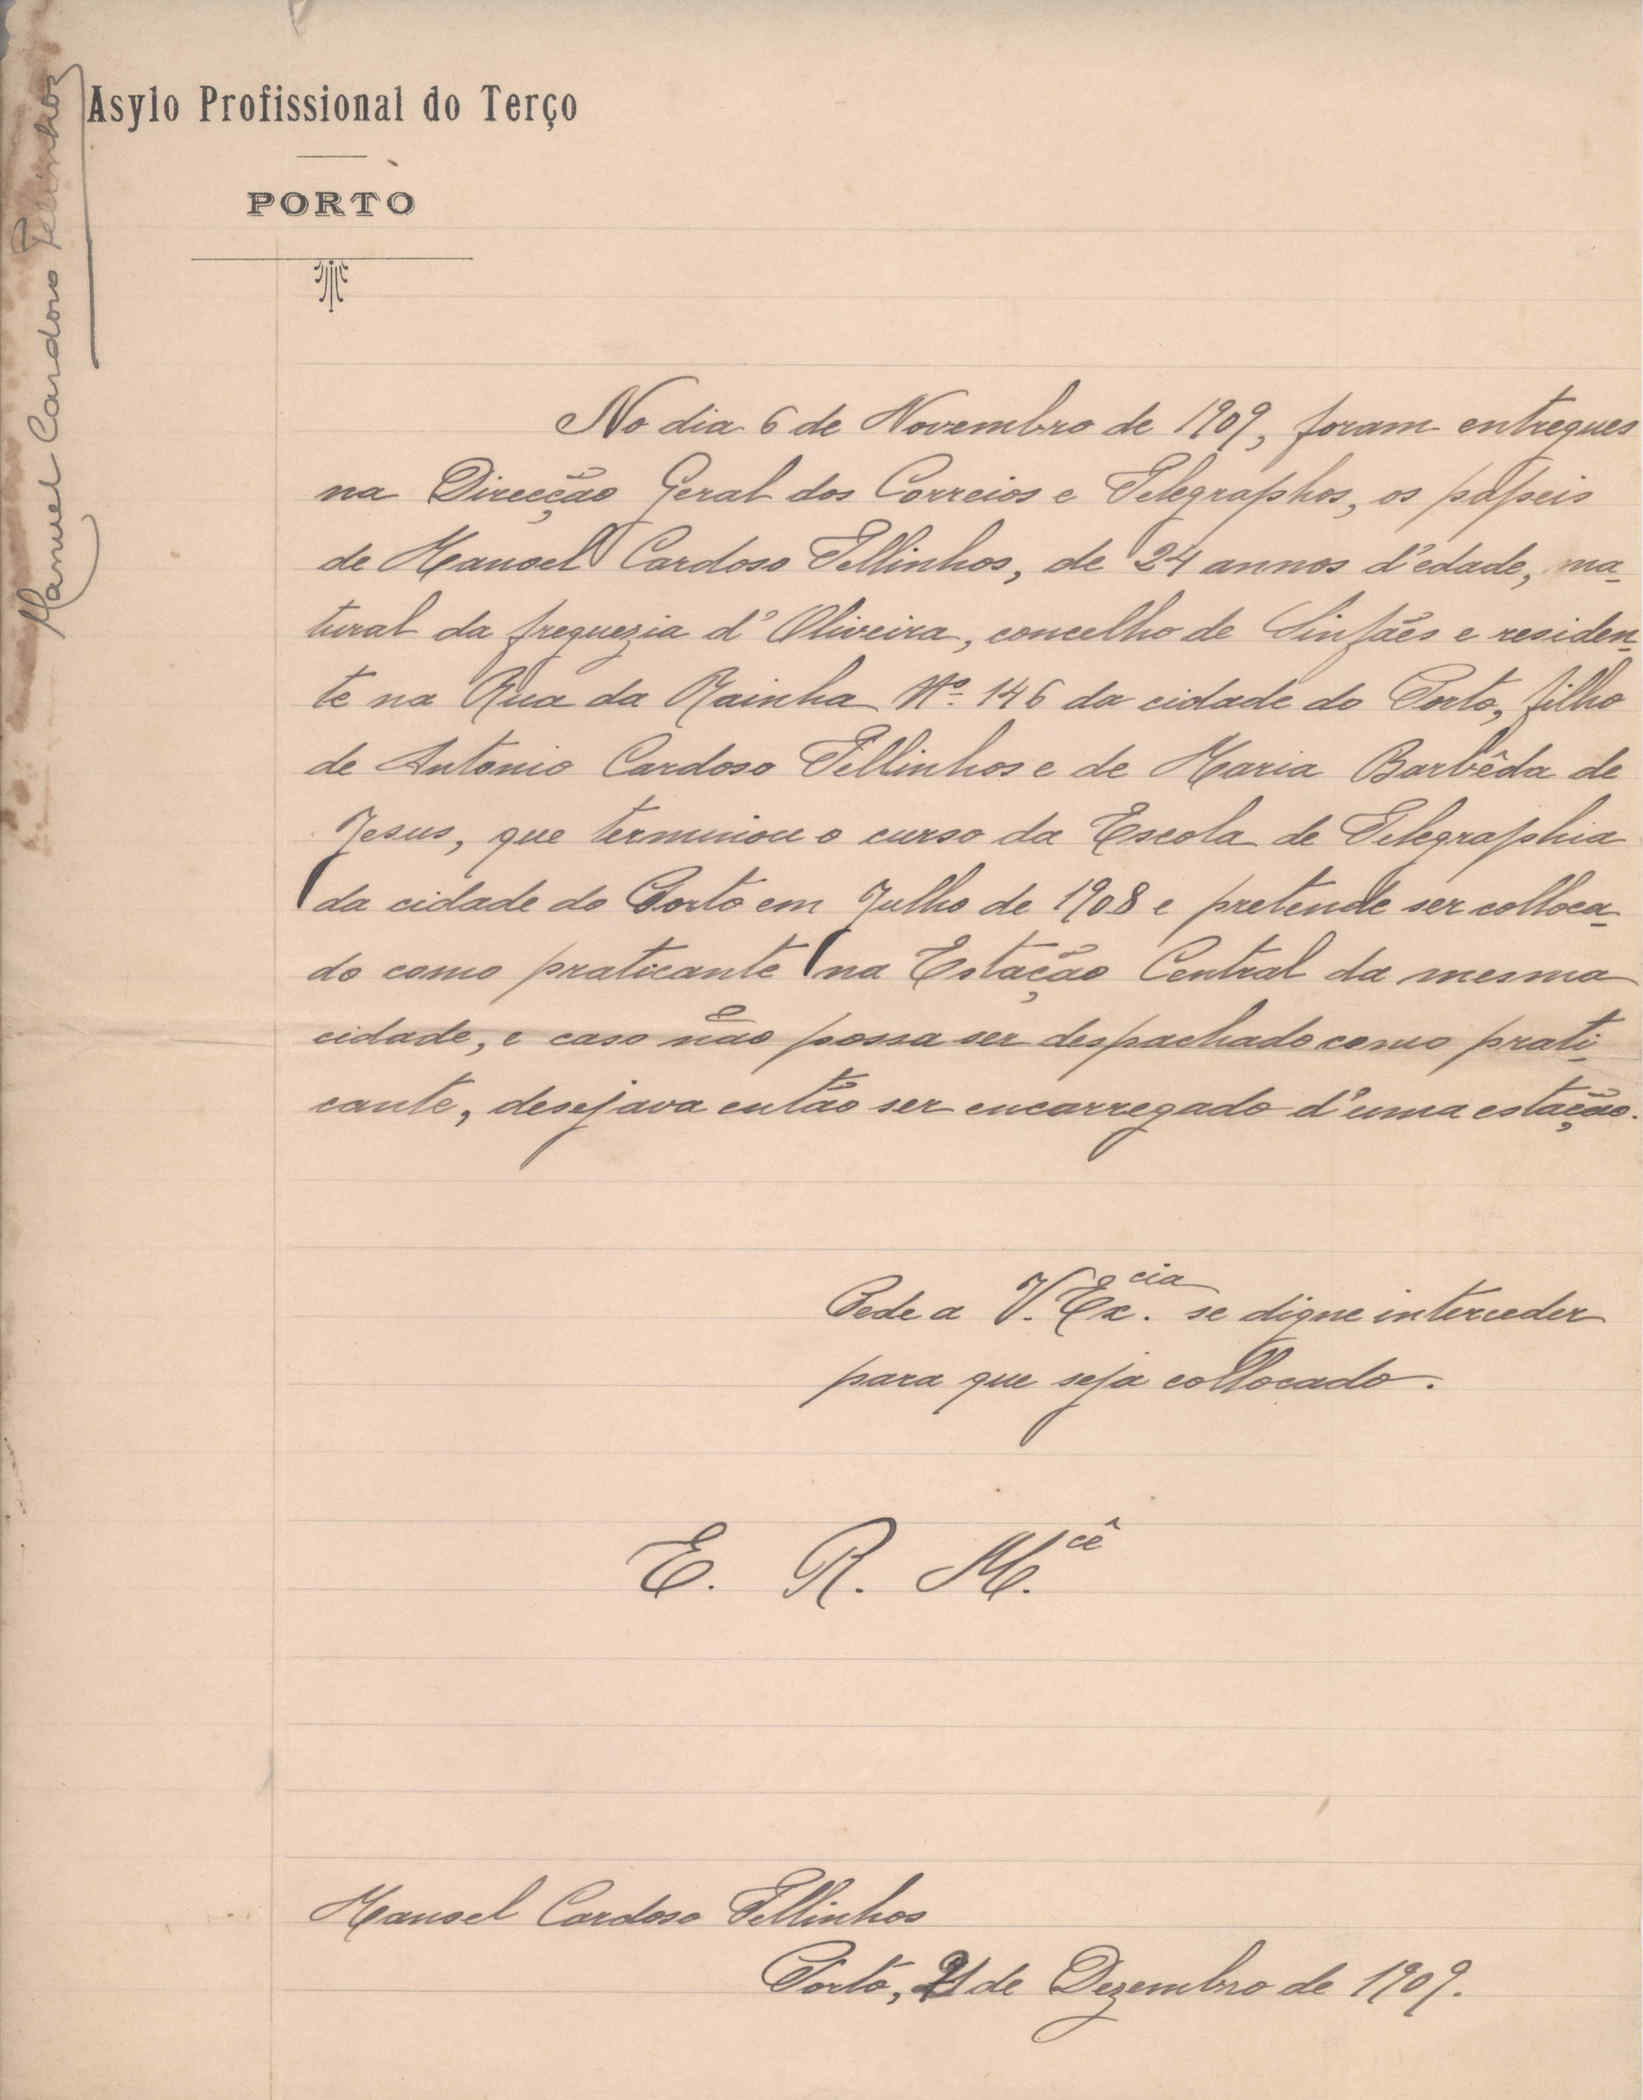 Asylo Profissional do Terço
PORTO
Manuel Cardoso
No dia 6 de Novembro de 1909, foram entregues
na Direcção Geral dos Correios e Telegraphos, os papeis
de Manoel Cardoso Tellinhos, de 24 annos d'edade, na-
tural da freguezia d'Oliveira, concelho de Sinfães e residen-
te na Rua da Rainha Nº 146 da cidade do Porto, filho
de Antonio Cardoso Tellinhos e de Maria Barbêda de
Jesus, que terminou o curso da Escola de Telegraphia
da cidade do Porto em Julho de 1908 e pretende ser colloca-
do como praticante na Estação Central da mesma
cidade, e caso não possa ser despachado como prati-
cante, desejava então ser encarregado d'uma estação.
Pede a V. Ex.cia se digne interceder
para que seja collocado.
E. R. M.cê
Manoel Cardoso Tellinhos
Porto, 21 de Dezembro de 1909.